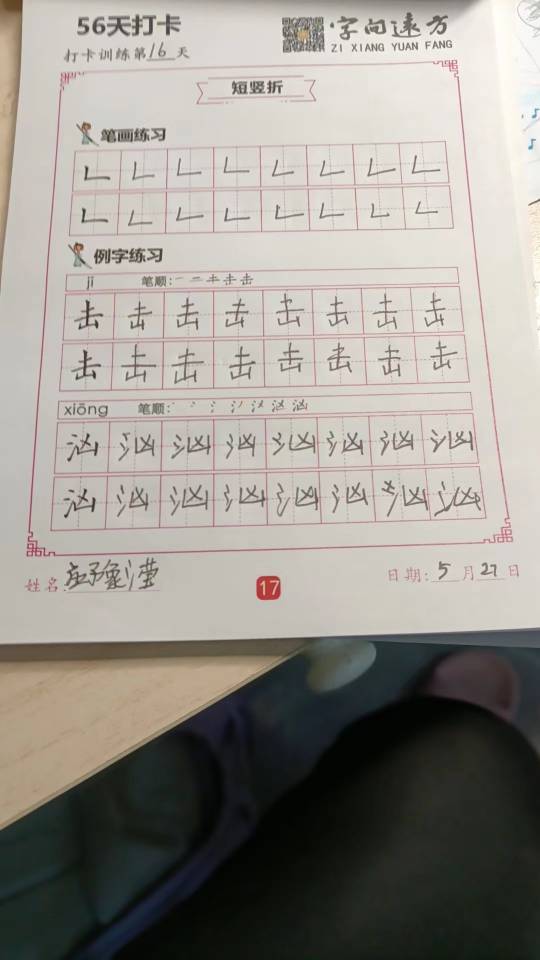 56天打卡
字向远方
ZI XIANG YUAN FANG
打卡训练第16天
短竖折
笔画练习
𠃊 𠃊 𠃊 𠃊 𠃊 𠃊 𠃊 𠃊
𠃊 𠃊 𠃊 𠃊 𠃊 𠃊 𠃊 𠃊
例字练习
jī 笔顺:
击 击 击 击 击 击 击 击
击 击 击 击 击 击 击 击
xiōng 笔顺:
汹 汹 汹 汹 汹 汹 汹 汹
汹 汹 汹 汹 汹 汹 汹 汹
姓名 豫滢
日期: 5月27日
17